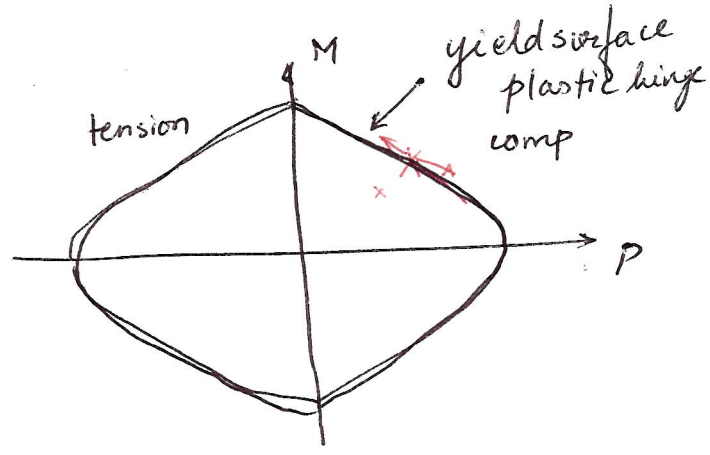 M
yield surface
plastic hinge
comp
tension
P